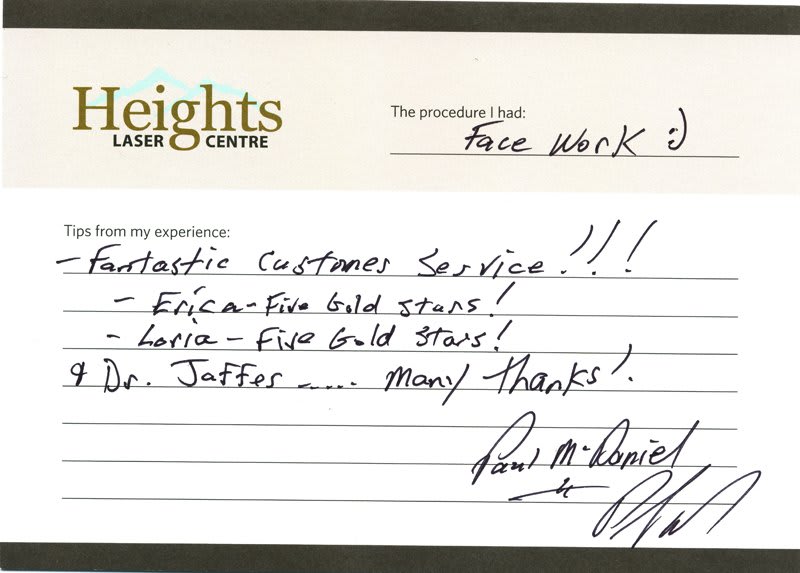 Heights
LASER CENTRE
The procedure I had:
Face Work :)
Tips from my experience:
- Fantastic Customer Service!!!
- Erica - Five Gold Stars!
- Loria - Five Gold Stars!
& Dr. Jaffer ..... Many thanks!
Paul McDaniel